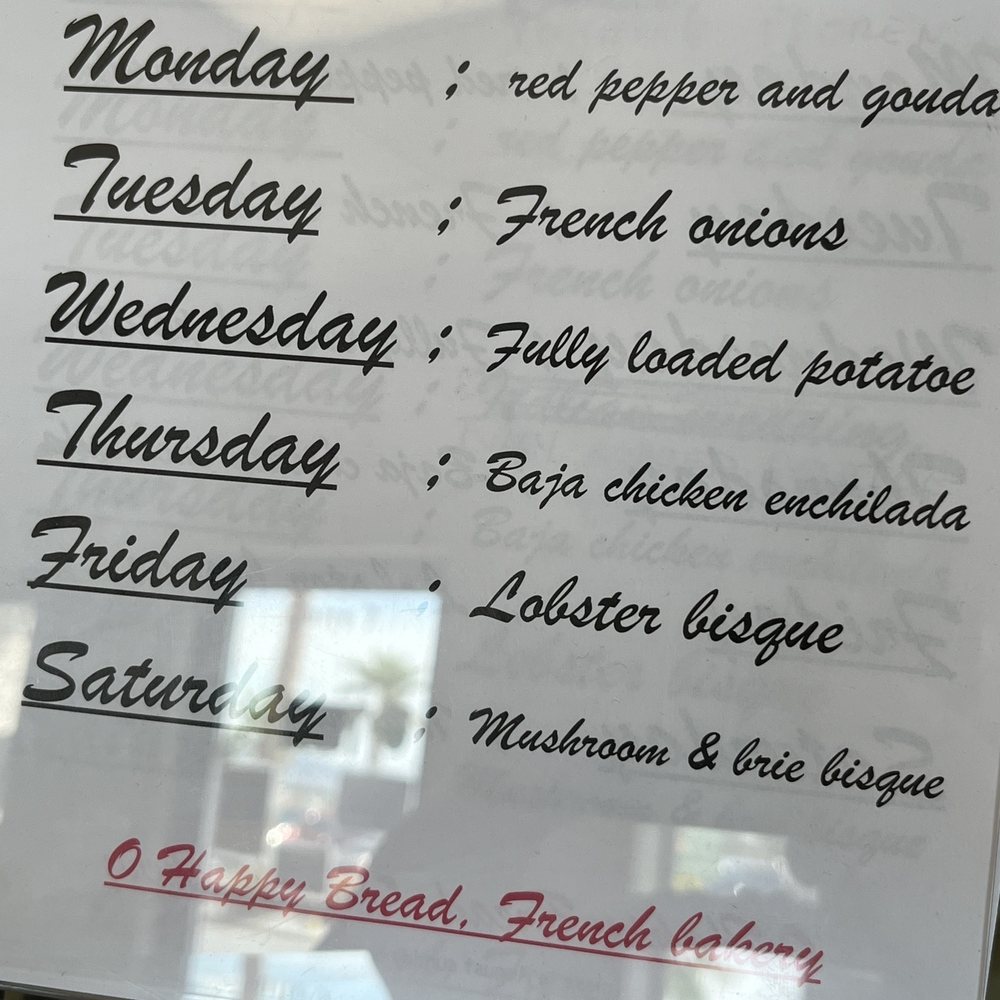 Monday ; red pepper and gouda
Tuesday ; French onions
Wednesday ; Fully loaded potatoe
Thursday ; Baja chicken enchilada
Friday ; Lobster bisque
Saturday ; Mushroom & brie bisque
O Happy Bread, French bakery